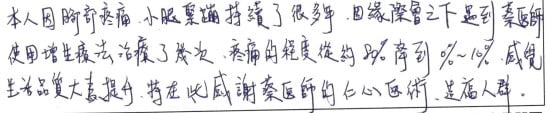 本人因腳部疼痛、小腿緊繃持續了很多年、因緣際會之下遇到蔡医師
使用增生療法治療了幾次、疼痛的程度從約80%降到0%~10%、感覺
生活品質大幅提升、特在此感謝蔡医師的仁心医術、造福人群。